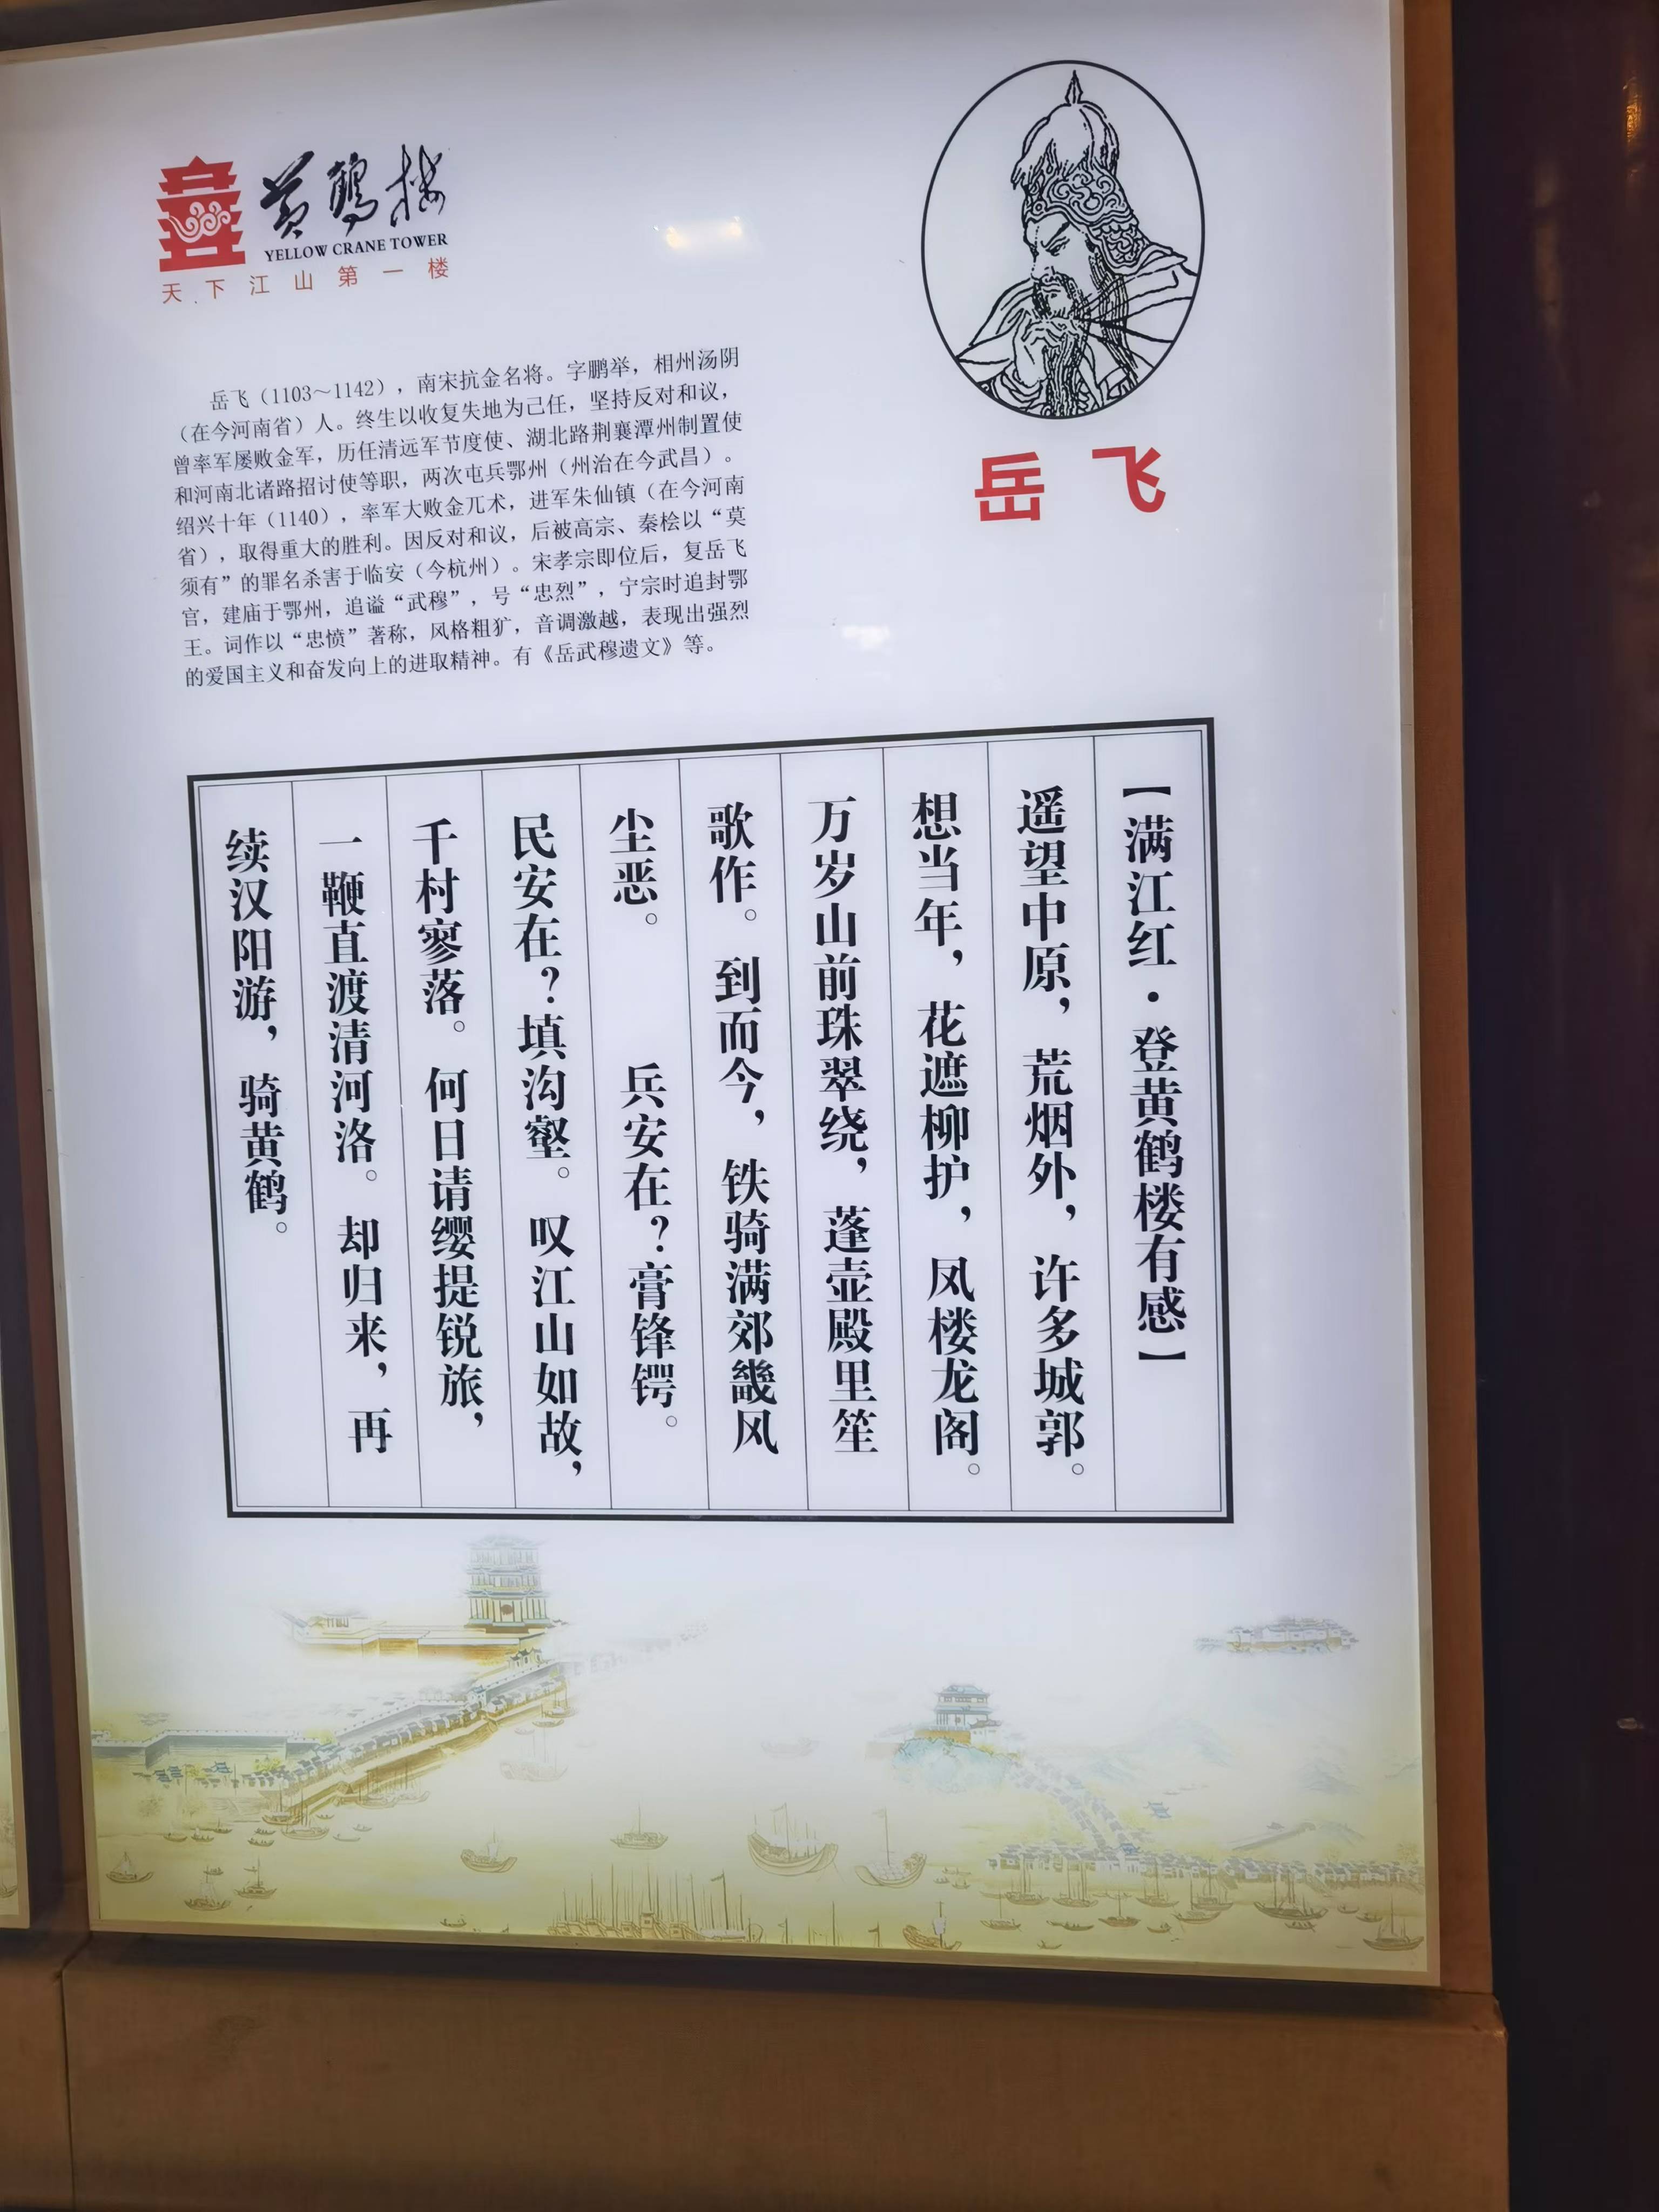 黄鹤楼
YELLOW CRANE TOWER
天下江山第一楼
岳飞
岳飞（1103～1142），南宋抗金名将。字鹏举，相州汤阴
（在今河南省）人。终生以收复失地为己任，坚持反对和议，
曾率军屡败金军，历任清远军节度使、湖北路荆襄潭州制置使
和河南北诸路招讨使等职，两次屯兵鄂州（州治在今武昌）。
绍兴十年（1140），率军大败金兀术，进军朱仙镇（在今河南
省），取得重大的胜利。因反对和议，后被高宗、秦桧以“莫
须有”的罪名杀害于临安（今杭州）。宋孝宗即位后，复岳飞
官，建庙于鄂州，追谥“武穆”，号“忠烈”，宁宗时追封鄂
王。词作以“忠愤”著称，风格粗犷，音调激越，表现出强烈
的爱国主义和奋发向上的进取精神。有《岳武穆遗文》等。
【满江红·登黄鹤楼有感】
遥望中原，荒烟外，许多城郭。
想当年，花遮柳护，凤楼龙阁。
万岁山前珠翠绕，蓬壶殿里笙
歌作。到而今，铁骑满郊畿风
尘恶。 兵安在？膏锋锷。
民安在？填沟壑。叹江山如故，
千村寥落。何日请缨提锐旅，
一鞭直渡清河洛。却归来，再
续汉阳游，骑黄鹤。